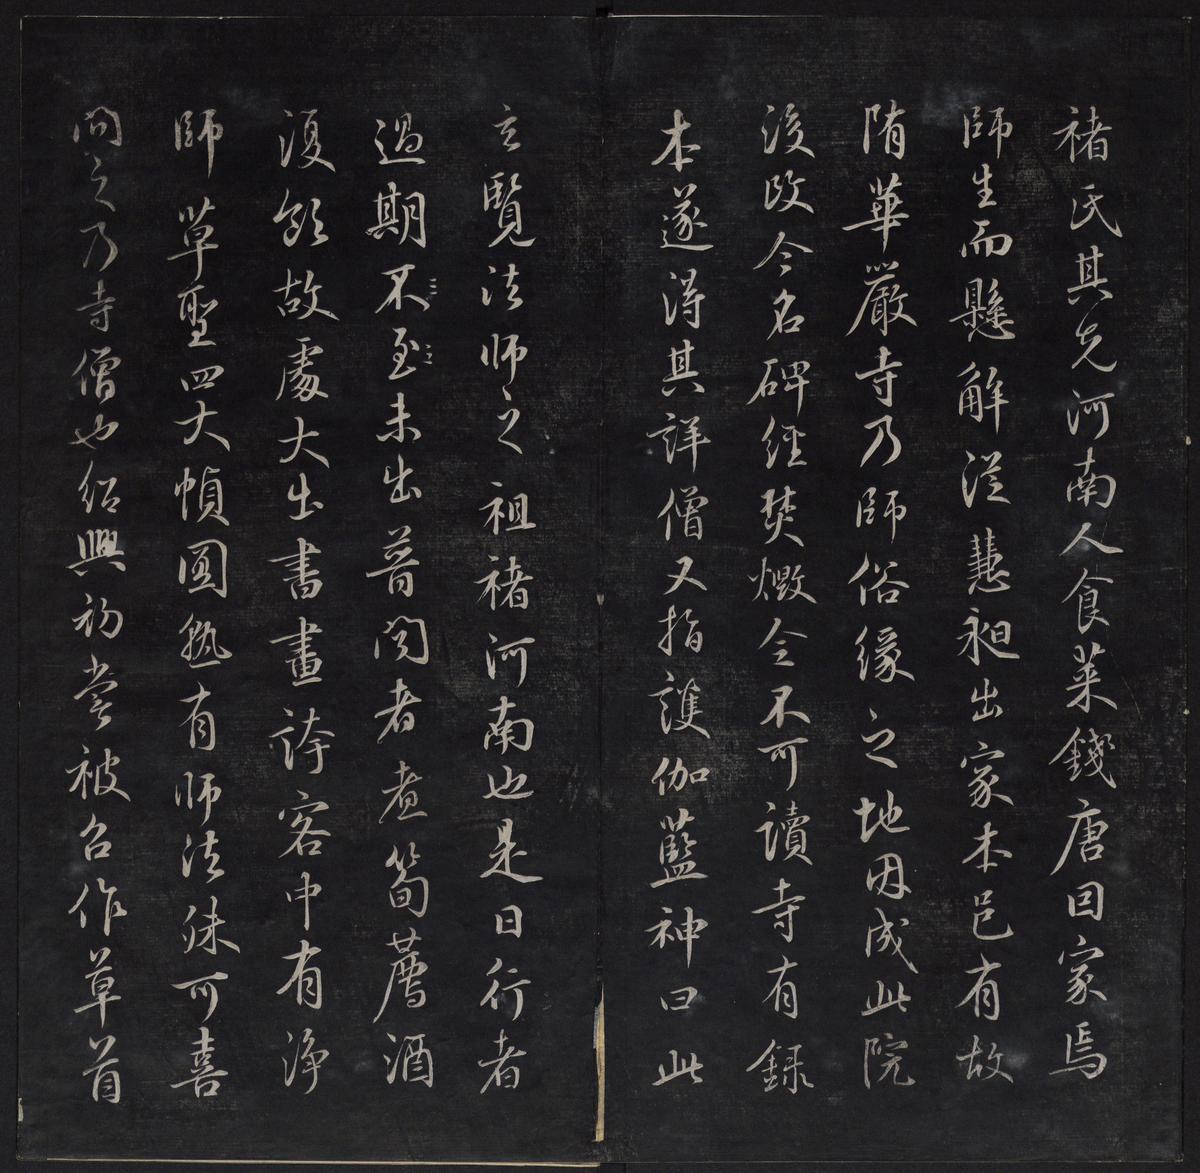 褚氏其先河南人食菜錢唐因家焉
師生而懸解從慧昶出家本邑有故
隋華嚴寺乃師俗緣之地因成此院
後改今名碑經焚燬今不可讀寺有錄
本遂得其詳僧又指護伽藍神曰此
玄覽法師之祖褚河南也是日行者
過期不至未出普閔者煮筍薦酒
復飲故處大出書畫誇客中有淨
師草聖四大幀圓熟有師法殊可喜
問之乃寺僧也紹興初嘗被召作草首